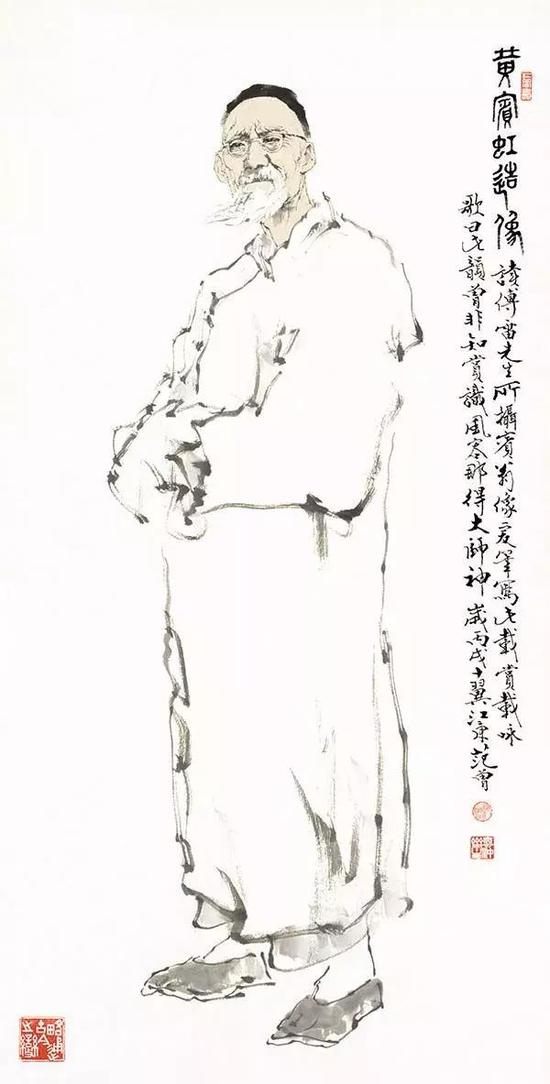 黄賓虹造像
讀傅雷先生所攝賓翁像爰筆寫此載賞載咏
歌曰此韻曾非知賞識風零那得大師神歲丙戌十翼江東范曾